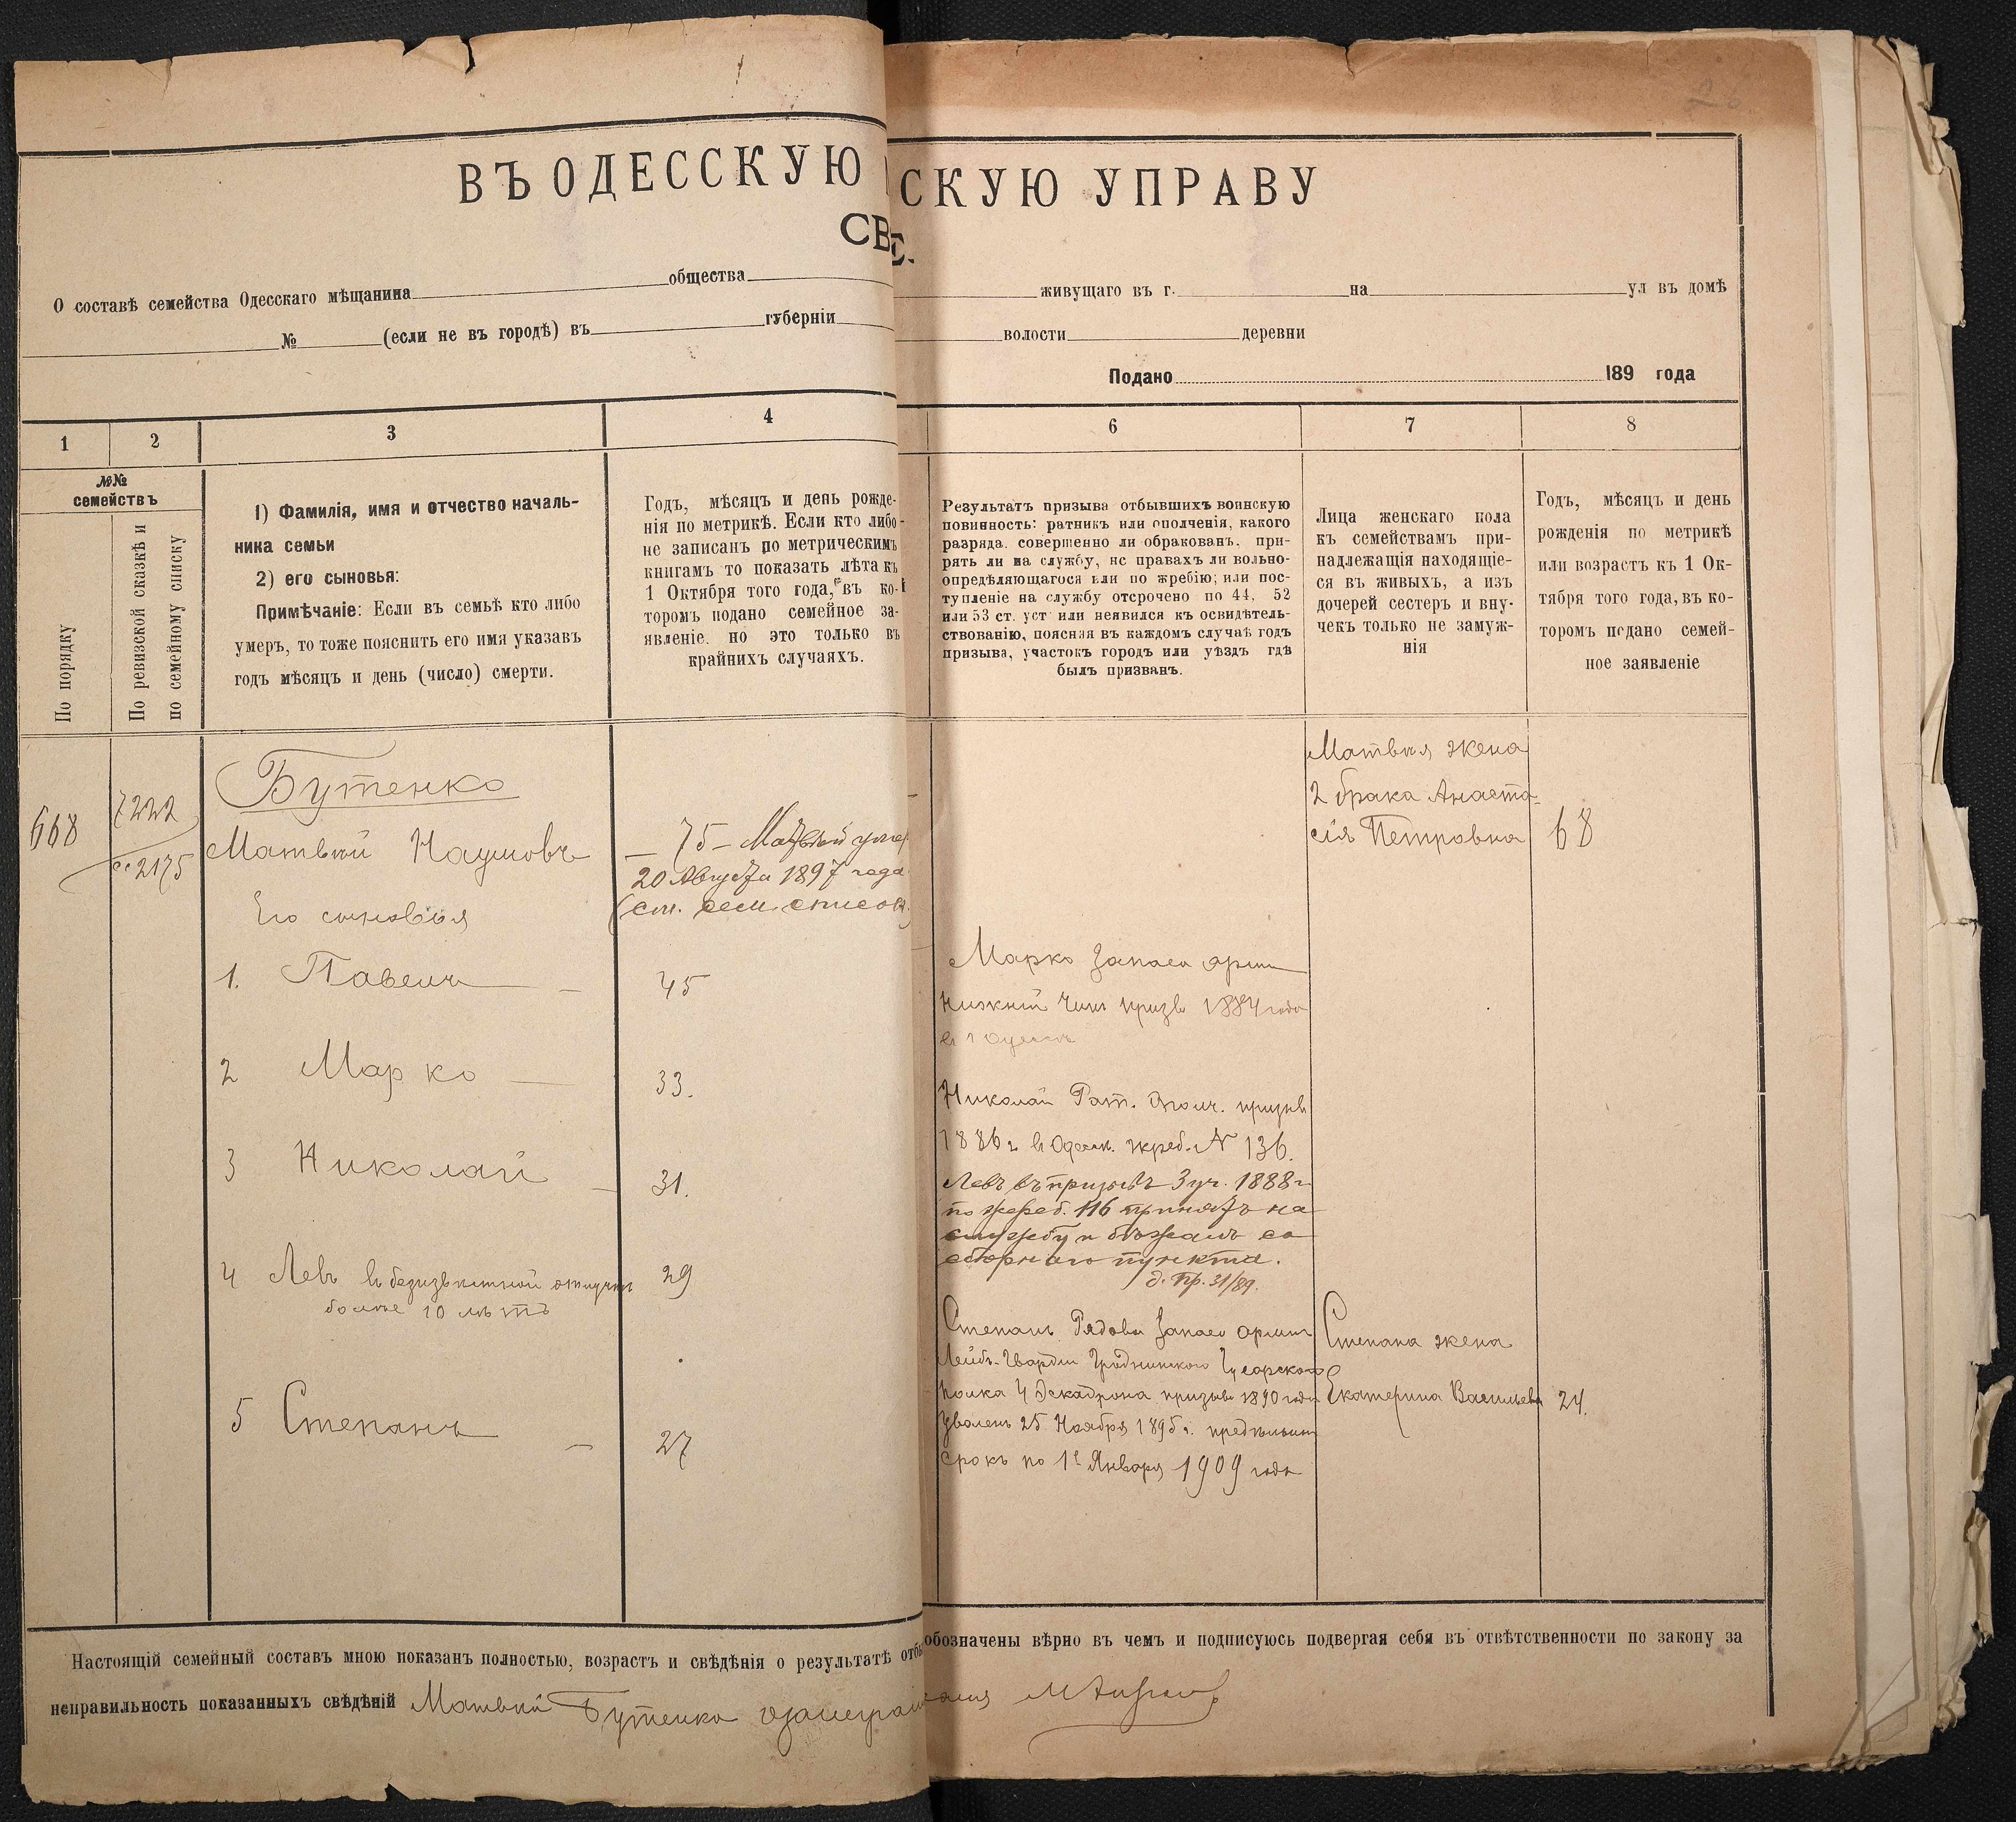 ВЪ ОДЕССКУЮ
СКУЮ УПРАВУ
СВ
О составѣ семейства Одесскаго мѣщанина общества
живущаго въ г. на ул въ домѣ
№ (если не въ городѣ) въ губерніи
волости деревни
Подано 189 года
1 2 3 4
6 7 8
№№
семействъ
По порядку
По ревизской сказкѣ и
по семейному списку
1) Фамилія, имя и отчество началь-
ника семьи
2) его сыновья:
Примѣчаніе: Если въ семьѣ кто либо
умеръ, то тоже пояснить его имя указавъ
годъ мѣсяцъ и день (число) смерти.
Годъ, мѣсяцъ и день рожде-
нія по метрикѣ. Если кто либо
не записанъ по метрическимъ
книгамъ то показать лѣта къ
1 Октября того года, въ ко-
торомъ подано семейное за-
явленіе. но это только въ
крайнихъ случаяхъ.
Результатъ призыва отбывшихъ воинскую
повинность: ратникъ или ополченія, какого
разряда. совершенно ли обракованъ. при-
рять ли на службу, нс правахъ ли вольно-
опредѣляющагося или по жребію; или пос-
тупленіе на службу отсрочено по 44, 52
или 53 ст. уст или неявился къ освидѣтель-
ствованію, поясняя въ каждомъ случаѣ годъ
призыва, участокъ городъ или уѣздъ гдѣ
былъ призванъ.
Лица женскаго пола
къ семействамъ при-
надлежащія находящіе-
ся въ живыхъ, а изъ
дочерей сестеръ и вну-
чекъ только не замуж-
нія
Годъ, мѣсяцъ и день
рожденія по метрикѣ
или возрастъ къ 1 Ок-
тября того года, въ ко-
торомъ подано семей-
ное заявленіе
668
7222
2175
Бутенко
Матвѣй Наумовъ
75 – Матвѣй умер
20 Августа 1897 года
(см. сем. списокъ)
Матвѣя жена
2 брака Анаста-
сія Петровна 68
Его сыновья
1. Павелъ 45
2 Марко 33.
3 Николай 31.
4 Левъ въ безизвѣстной отлучкѣ 29
болѣе 10 лѣтъ
5 Степанъ 27
Марко запаса арміи
нижній чинъ призв 1884 года
Николай Рат. Ополч. призыв
1886 г. в Одессѣ. жреб. № 136.
Левъ въ призывъ 3 уч. 1888 г
по жереб. 116 принятъ на
службу и бѣжалъ со
сборнаго пункта.
д. пр. 31/89.
Степанъ Рядовой запаса арміи
Лейбъ-Гвардіи Гродненского Гусарского
полка 4 Эскадрона призыв 1890 года
уволенъ 25 Ноября 1895 г.
срокъ по 1е Января 1909 года
Степана жена
Екатерина Васильева 24.
Настоящій семейный составъ мною показанъ полностью, возрастъ и свѣдѣнія о результатѣ отбы
обозначены вѣрно въ чемъ и подписуюсь подвергая себя въ отвѣтственности по закону за
неправильность показанныхъ свѣдѣній Матвѣй Бутенко